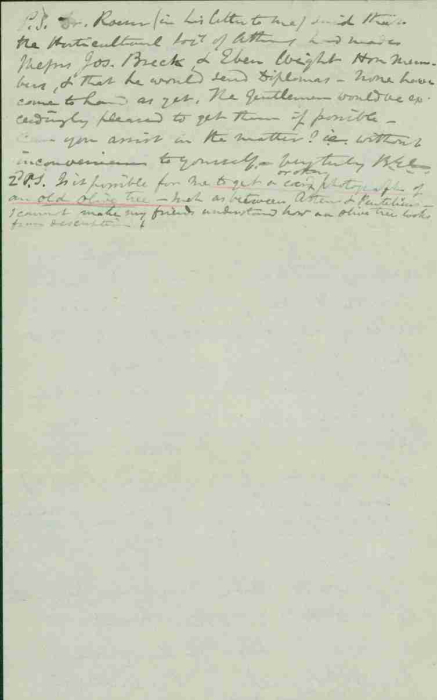 P.S. Dr. (in his letter to me) said that
the Horticultural Soc't of Athens had made
Messrs Jos. Breck & Eben Wight Hon Mem-
bers, & that he would send Diplomas - None have
come to hand as yet. The Gentlemen would be ex-
ceedingly pleased to get them if possible -
Can you assist in the matter? i.e. without
inconvenience to yourself - very truly
2d P.S. Is it possible for me to get a photograph of
or other
an old olive tree - such as between Athens &
I cannot make my friends understand how an olive tree looks
from description